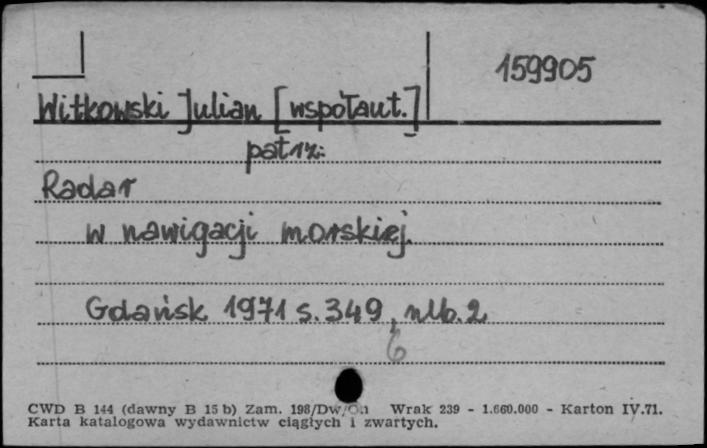 159905
Witkowski Julian [współaut.]
patrz:
Radar
w nawigacji morskiej.
Gdańsk 1971 s. 349, nlb. 2
6
CWD B 144 (dawny B 15 b) Zam. 198/Dw/On Wrak 239 - 1.660.000 - Karton IV.71.
Karta katalogowa wydawnictw ciągłych i zwartych.